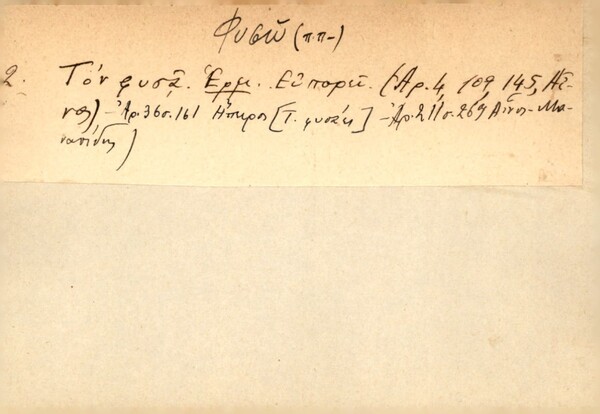 Φυσῶ (π.π-)
2. Τόν φυσᾷ. Ἑρμ. Εὐπορεῖ. (Ἀρ. 4, 109, 145, Αἶ-
νος) - Ἀρ. 36 σ. 161 Ἤπειρος [Τ. φυσάει] - Ἀρ. 211 σ. 269 Αἶνος - Μα-
νασίδης)